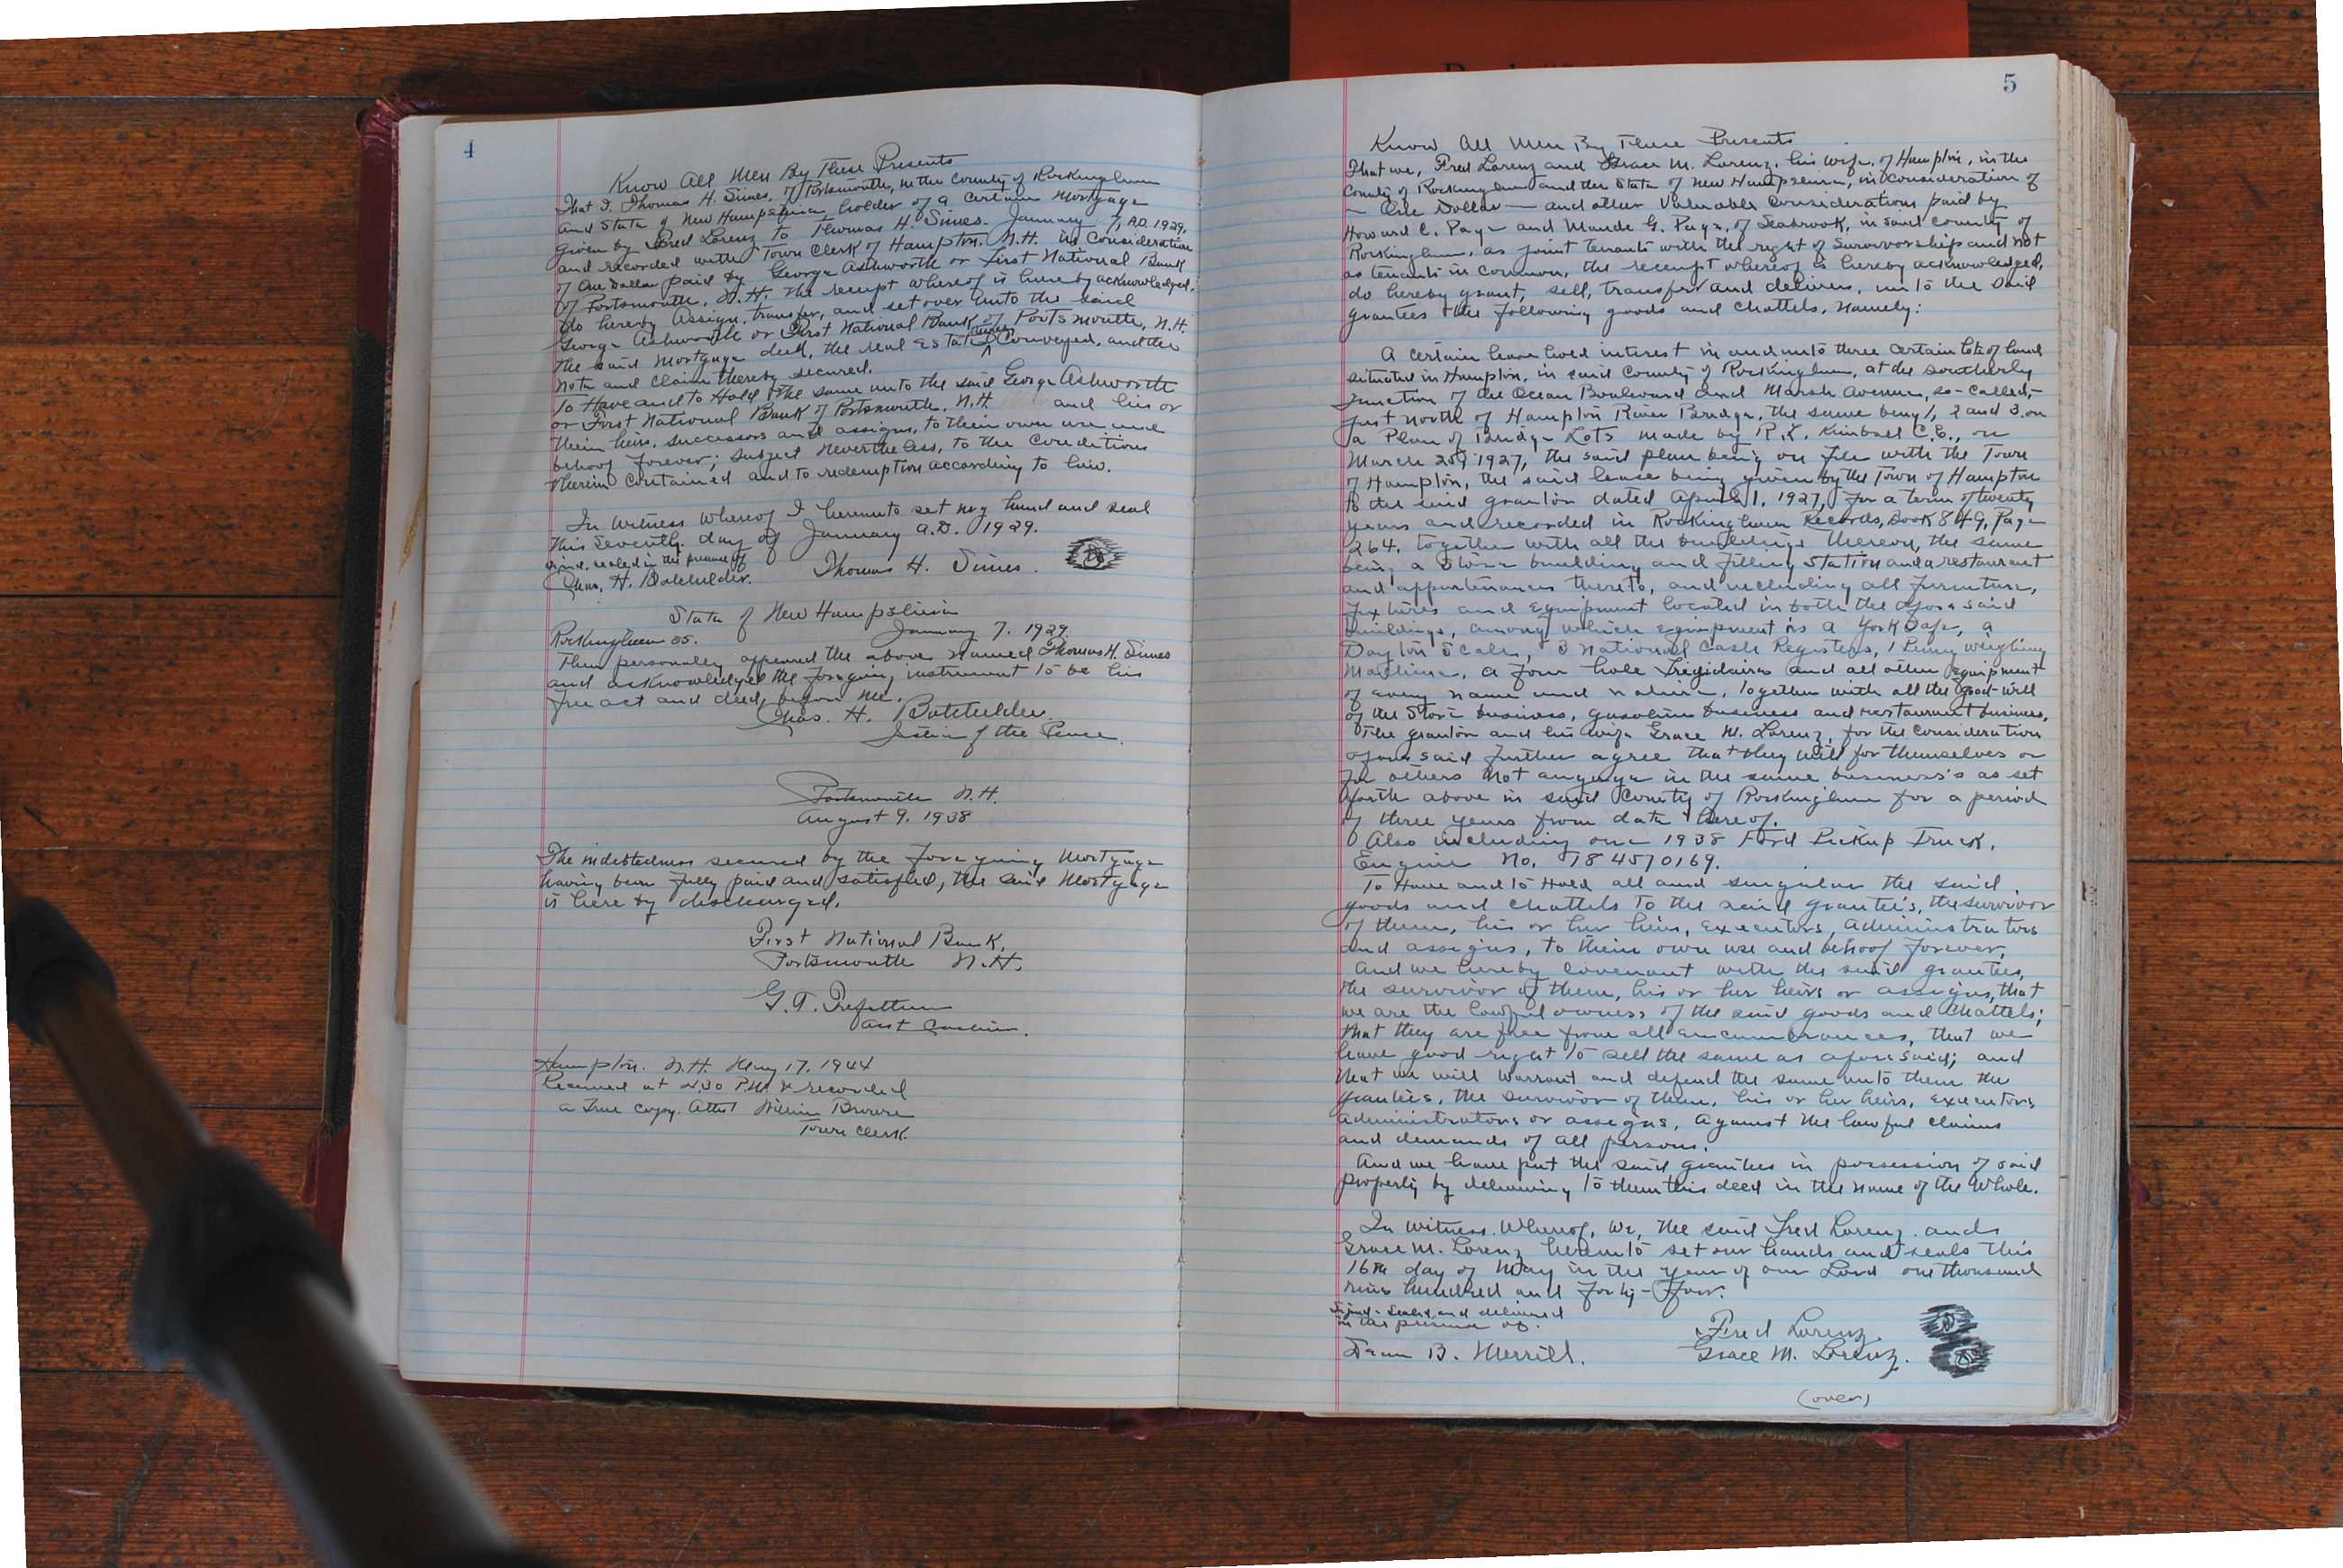 4
Know All Men By These Presents
That I, Thomas H. Simes, of Portsmouth, in the County of Rockingham
and State of New Hampshire holder of a certain mortgage
given by Fred Lorenz to Thomas H. Simes. January 7, A.D. 1929,
and recorded with Town Clerk of Hampton. N.H. in consideration
of One Dollar paid by George Ashworth or First National Bank
of Portsmouth, N.H. the receipt whereof is hereby acknowledged,
do hereby assign, transfer, and set over unto the said
George Ashworth or First National Bank of Portsmouth, N.H.
the said mortgage deed, the real estate thereby conveyed, and the
note and claim thereby secured.
To Have and to Hold the same unto the said George Ashworth
or First National Bank of Portsmouth, N.H. and his or
their heirs, successors and assigns, to their own use and
behoof forever; subject nevertheless, to the conditions
therein contained and to redemption according to law.
In Witness Whereof I hereunto set my hand and seal
this seventh day of January A.D. 1929.
signed, sealed in the presence of
Chas. H. Batchelder. Thomas H. Simes.
State of New Hampshire
Rockingham ss. January 7. 1929.
Then personally appeared the above named Thomas H. Simes
and acknowledged the foregoing instrument to be his
free act and deed, before me.
Chas. H. Batchelder
Justice of the Peace.
Portsmouth N.H.
August 9, 1938
The indebtedness secured by the foregoing Mortgage
having been fully paid and satisfied, the said Mortgage
is here by discharged.
First National Bank,
Portsmouth N.H.
G. T.
Asst Cashier.
Hampton. N.H. May 17, 1944
Received at 4:30 P.M. & recorded
a True copy. Attest William Brown
Town Clerk.
5
Know All Men By These Presents
That we, Fred Lorenz and Grace M. Lorenz, his wife, of Hampton, in the
County of Rockingham and the State of New Hampshire, in consideration of
— One Dollar — and other valuable considerations paid by
Howard C. Page and Maude G. Page, of Seabrook, in said county of
Rockingham, as joint tenants with the right of survivorship and not
as tenants in common, the receipt whereof is hereby acknowledged,
do hereby grant, sell, transfer and deliver, unto the said
grantees the following goods and chattels, namely:
A certain lease hold interest in and unto three certain lots of land
situated in Hampton, in said County of Rockingham, at the southerly
junction of the Ocean Boulevard and Marsh Avenue, so-called,-
just north of Hampton River Bridge, the same being 1, 2 and 3 on
a Plan of Bridge Lots made by R.L. Kimball C.E., on
March 29, 1927, the said plan being on file with the Town
of Hampton, the said lease being given by the Town of Hampton
to the said grantor dated April 1, 1927, for a term of twenty
years and recorded in Rockingham Records, Book 849, Page
264, together with all the buildings thereon, the same
being a Store building and filling station and a restaurant
and appurtenances thereto, and including all furniture,
fixtures and equipment located in both the aforesaid
buildings, among which equipment is a York Safe, a
Dayton Scales, 3 National Cash Registers, 1 Penny weighing
Machine, a four hole Frigidaire and all other equipment
of every name and nature, together with all the good-will
of the Store business, gasoline business and restaurant business,
The grantor and his wife Grace M. Lorenz, for the consideration
aforesaid further agree that they will for themselves or
for others not engage in the same business's as set
forth above in said County of Rockingham for a period
of three years from date hereof.
Also including one 1938 Ford Pickup Truck,
Engine No. 18 4570169.
To Have and to Hold all and singular the said
goods and chattels to the said grantees, the survivor
of them, his or her heirs, executors, administrators
and assigns, to their own use and behoof forever,
And we hereby covenant with the said grantees,
the survivor of them, his or her heirs or assigns, that
we are the lawful owners of the said goods and chattels;
that they are free from all encumbrances, that we
have good right to sell the same as aforesaid; and
that we will warrant and defend the same unto them the
grantees, the survivor of them, his or her heirs, executors,
administrators or assigns, against the lawful claims
and demands of all persons.
And we have put the said grantees in possession of said
property by delivering to them this deed in the name of the whole.
In Witness Whereof, we, the said Fred Lorenz and
Grace M. Lorenz hereunto set our hands and seals this
16th day of May in the year of our Lord one thousand
nine hundred and forty-four.
Signed, Sealed and delivered
in the presence of.
B. Merrill. Fred Lorenz
Grace M. Lorenz.
(over)